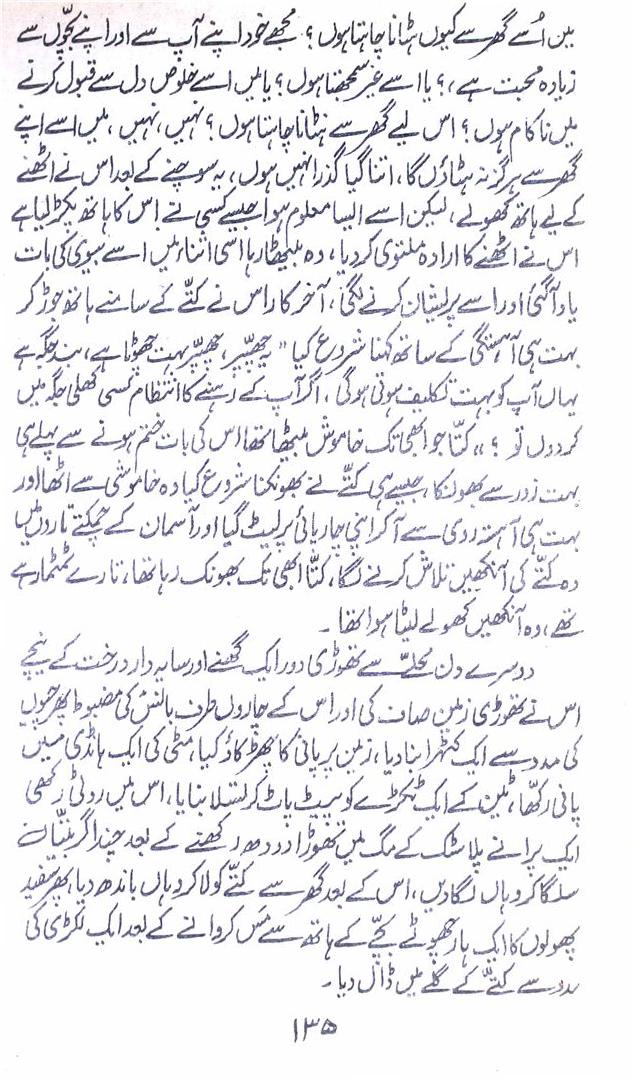 میں اُسے گھر سے کیوں ہٹانا چاہتا ہوں؟ مجھے خود اپنے آپ سے اور اپنے بچّوں سے
زیادہ محبت ہے،؟ یا اسے غیر سمجھتا ہوں؟ یا میں اسے خلوص دل سے قبول کرنے
میں ناکام ہوں؟ اس لیے گھر سے ہٹانا چاہتا ہوں؟ نہیں، نہیں، میں اسے اپنے
گھر سے ہرگز نہ ہٹاؤں گا، اتنا گیا گذرا نہیں ہوں، یہ سوچنے کے بعد اس نے اٹھنے
کے لیے ہاتھ کھولے، لیکن اسے ایسا معلوم ہوا جیسے کسی نے اس کا ہاتھ پکڑ لیا ہے
اس نے اٹھنے کا ارادہ ملتوی کر دیا، وہ بیٹھا رہا اسی اثناء میں اسے بیوی کی بات
یاد آگئی اور اسے پریشان کرنے لگی، آخر کار اس نے کتّے کے سامنے ہاتھ جوڑ کر
بہت ہی آہستگی کے ساتھ کہنا شروع کیا " یہ چھپّر، چھپّر بہت چھوٹا ہے، بند جگہ ہے
یہاں آپ کو بہت تکلیف ہوتی ہوگی، اگر آپ کے رہنے کا انتظام کسی کھلی جگہ میں
کردوں تو ؟ ،، کتّا جو ابھی تک خاموش بیٹھا تھا اس کی بات ختم ہونے سے پہلے ہی
بہت زور سے بھونکا، جیسے ہی کتّے نے بھونکنا شروع کیا وہ خاموشی سے اٹھا اور
بہت ہی آہستہ روی سے آکر اپنی چارپائی پر لیٹ گیا اور آسمان کے چمکتے تاروں میں
وہ کتّے کی آنکھیں تلاش کرنے لگا، کتّا ابھی تک بھونک رہا تھا، تارے ٹمٹما رہے
تھے، وہ آنکھیں کھولے لیٹا ہوا تھا۔
دوسرے دن محلّے سے تھوڑی دور ایک گھنے اور سایہ دار درخت کے نیچے
اس نے تھوڑی زمین صاف کی اور اس کے چاروں طرف بانس کی مضبوط پھرچیوں
کی مدد سے ایک کٹہرا بنا دیا، زمین پر پانی کا چھڑکاؤ کیا، مٹی کی ایک ہانڈی میں
پانی رکھّا، ٹین کے ایک ٹکڑے کو پیٹ پاٹ کر تسلا بنایا، اس میں روٹی رکھی
ایک پرانے پلاسٹک کے مگ میں تھوڑا دودھ رکھنے کے بعد چند اگر بتّیاں
سلگا کر وہاں لگا دیں، اس کے بعد گھر سے کتّے کو لا کر وہاں باندھ دیا، پھر سفید
پھولوں کا ایک ہار چھوٹے بچّے کے ہاتھ سے مَس کروانے کے بعد ایک لکڑی کی
مدد سے کتّے کے گلے میں ڈال دیا۔
۱۳۵